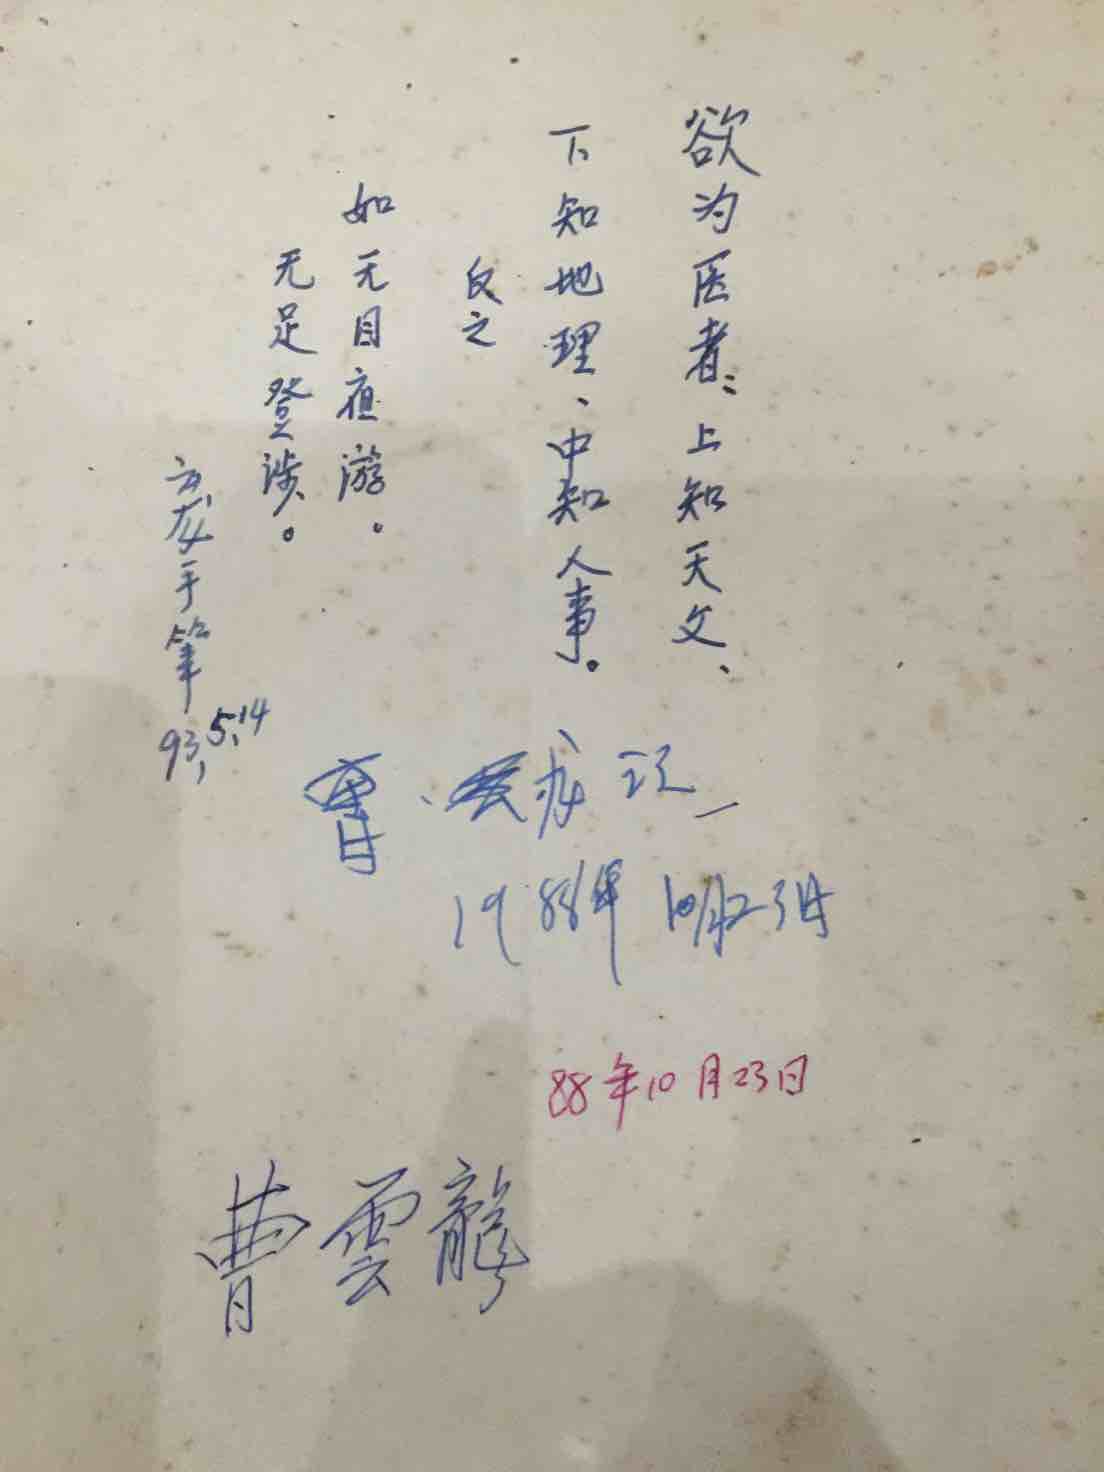 欲为医者：上知天文、
下知地理、中知人事。
反之
如无目夜游。
无足登涉。
云龙手笔
93,5,14
曹、云龙记
1988年10月23日
88年10月23日
曹雲龍